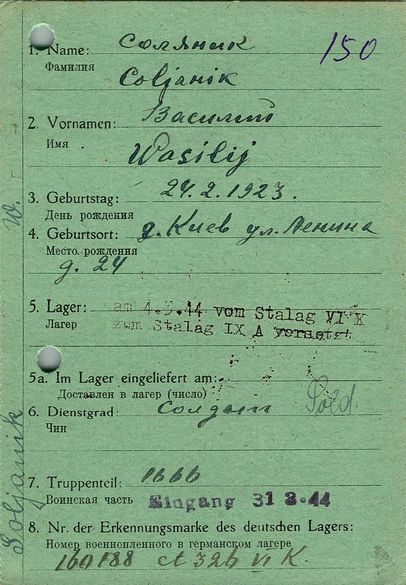 150
1. Name: Соляник
Фамилия
Coljanik
2. Vornamen: Василий
Имя
Wasilij
3. Geburtstag: 24.2.1923.
День рождения
4. Geburtsort: г. Киев ул. Ленина
Место рождения
д. 24
5. Lager: am 4.3.44 vom Stalag VI K
Лагер zum Stalag IX A versetzt
5a. Im Lager eingeliefert am:
Доставлен в лагер (число)
6. Dienstgrad: солдат Sold.
Чин
7. Truppenteil:
Воинская часть Eingang 31 3.44
8. Nr. der Erkennungsmarke des deutschen Lagers:
Номер военнопленного в германском лагере
326 VI K
Soljanik W.